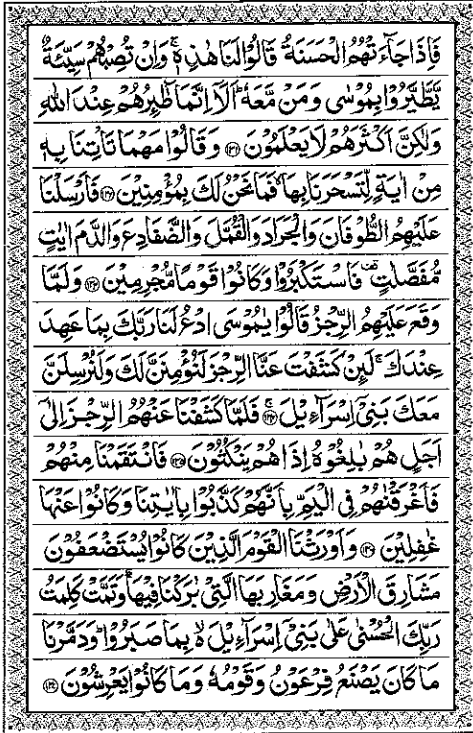 فَاِذَا جَآءَتْهُمُ الْحَسَنَةُ قَالُوْا لَنَا هٰذِهٖ ۚ وَاِنْ تُصِبْهُمْ سَيِّئَةٌ
يَّطَّيَّرُوْا بِمُوْسٰى وَمَنْ مَّعَهٗ ؕ اَلَاۤ اِنَّمَا طٰٓئِرُهُمْ عِنْدَ اللّٰهِ
وَلٰكِنَّ اَكْثَرَهُمْ لَا يَعْلَمُوْنَ ﴿۱۳۱﴾ وَقَالُوْا مَهْمَا تَاْتِنَا بِهٖ
مِنْ اٰيَةٍ لِّتَسْحَرَنَا بِهَا ۙ فَمَا نَحْنُ لَكَ بِمُؤْمِنِيْنَ ﴿۱۳۲﴾ فَاَرْسَلْنَا
عَلَيْهِمُ الطُّوْفَانَ وَالْجَرَادَ وَالْقُمَّلَ وَالضَّفَادِعَ وَالدَّمَ اٰيٰتٍ
مُّفَصَّلٰتٍ فَاسْتَكْبَرُوْا وَكَانُوْا قَوْمًا مُّجْرِمِيْنَ ﴿۱۳۳﴾ وَلَمَّا
وَقَعَ عَلَيْهِمُ الرِّجْزُ قَالُوْا يٰمُوْسَى ادْعُ لَنَا رَبَّكَ بِمَا عَهِدَ
عِنْدَكَ ۚ لَئِنْ كَشَفْتَ عَنَّا الرِّجْزَ لَنُؤْمِنَنَّ لَكَ وَلَنُرْسِلَنَّ
مَعَكَ بَنِيْۤ اِسْرَآءِيْلَ ﴿۱۳۴﴾ فَلَمَّا كَشَفْنَا عَنْهُمُ الرِّجْزَ اِلٰۤى
اَجَلٍ هُمْ بٰلِغُوْهُ اِذَا هُمْ يَنْكُثُوْنَ ﴿۱۳۵﴾ فَانْتَقَمْنَا مِنْهُمْ
فَاَغْرَقْنٰهُمْ فِى الْيَمِّ بِاَنَّهُمْ كَذَّبُوْا بِاٰيٰتِنَا وَكَانُوْا عَنْهَا
غٰفِلِيْنَ ﴿۱۳۶﴾ وَاَوْرَثْنَا الْقَوْمَ الَّذِيْنَ كَانُوْا يُسْتَضْعَفُوْنَ
مَشَارِقَ الْاَرْضِ وَمَغَارِبَهَا الَّتِيْ بٰرَكْنَا فِيْهَا ؕ وَتَمَّتْ كَلِمَتُ
رَبِّكَ الْحُسْنٰى عَلٰى بَنِيْۤ اِسْرَآءِيْلَ ۙ۬ بِمَا صَبَرُوْا ؕ وَدَمَّرْنَا
مَا كَانَ يَصْنَعُ فِرْعَوْنُ وَقَوْمُهٗ وَمَا كَانُوْا يَعْرِشُوْنَ ﴿۱۳۷﴾